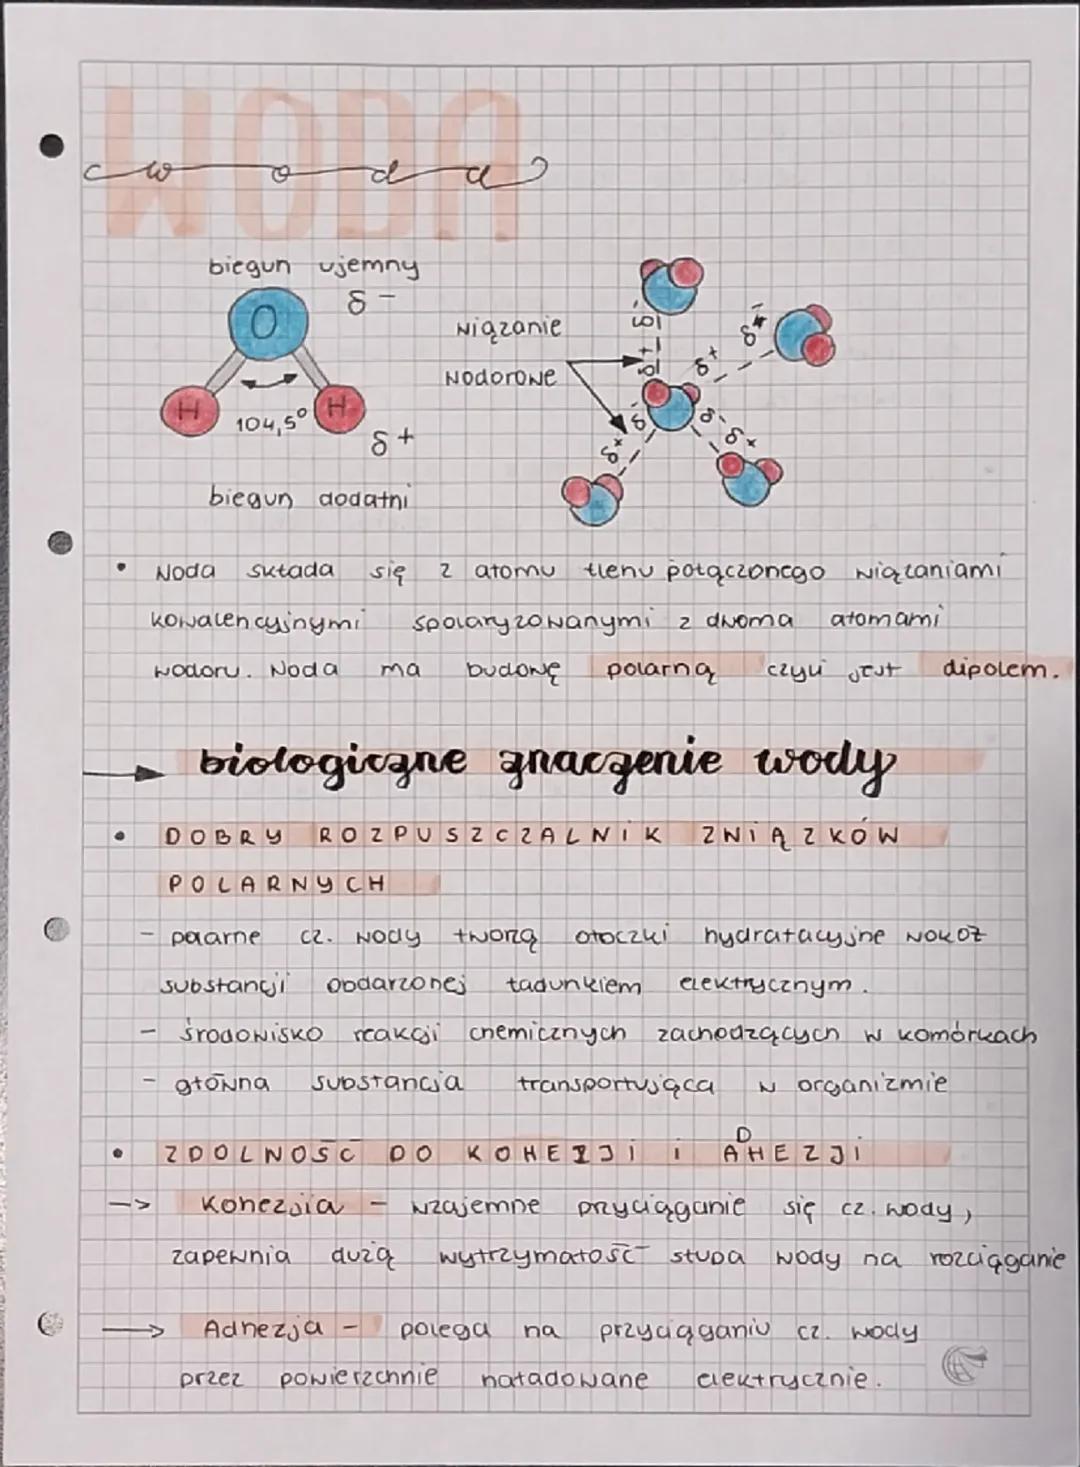 WODA
woda
biegun ujemny
δ -
O
H
H
104,5°
δ +
biegun dodatni
wiązanie
wodorowe
δ-
δ+
δ+
δ-
δ-
δ+
δ-
δ+
• Woda składa się z atomu tlenu połączonego wiązaniami
kowalencyjnymi spolaryzowanymi z dwoma atomami
wodoru. Woda ma budowę polarną czyli jest dipolem.
→ biologiczne znaczenie wody
• DOBRY ROZPUSZCZALNIK ZWIĄZKÓW
POLARNYCH
- polarne cz. wody tworzą otoczki hydratacyjne wokół
substancji obdarzonej ładunkiem elektrycznym.
- środowisko reakcji chemicznych zachodzących w komórkach
- główna substancja transportująca w organizmie
• ZDOLNOŚĆ DO KOHEZJI i ADHEZJI
-> Kohezja - wzajemne przyciąganie się cz. wody,
zapewnia dużą wytrzymałość słupa wody na rozciąganie
-> Adhezja - polega na przyciąganiu cz. wody
przez powierzchnie naładowane elektrycznie.